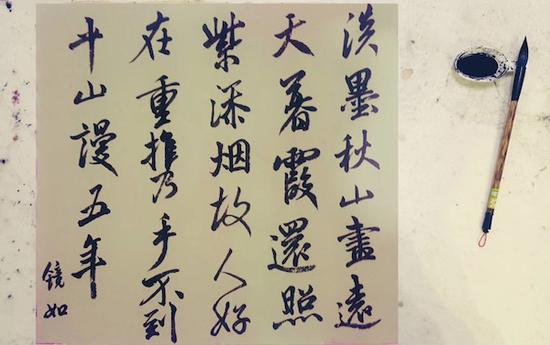 淡墨秋山盡遠
天暮霞還照
紫添烟故人好
在重攜手不到
平山謾五年
镜如